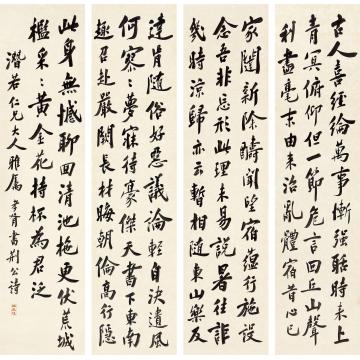 古人喜經綸萬事時未上
青冥俯仰但一節危言回丘山聲
利盡毫末由來治亂體宿昔心已
達肯隨俗好惡議論輕自決遺風
何寥寥夢寐待豪傑天書下東南
趣召赴嚴闕長材晦朝倫高行隱
家闥新除疇聞望宿蘊行施設
念吾非忘形此理未易說暑往詎
幾時涼歸亦云暫相隨東山樂及
此身無憾聊回清池柂更伏荒城
檻采采黃金花持杯為君泛
濳若仁兄大人雅屬 孝胥書荆公詩